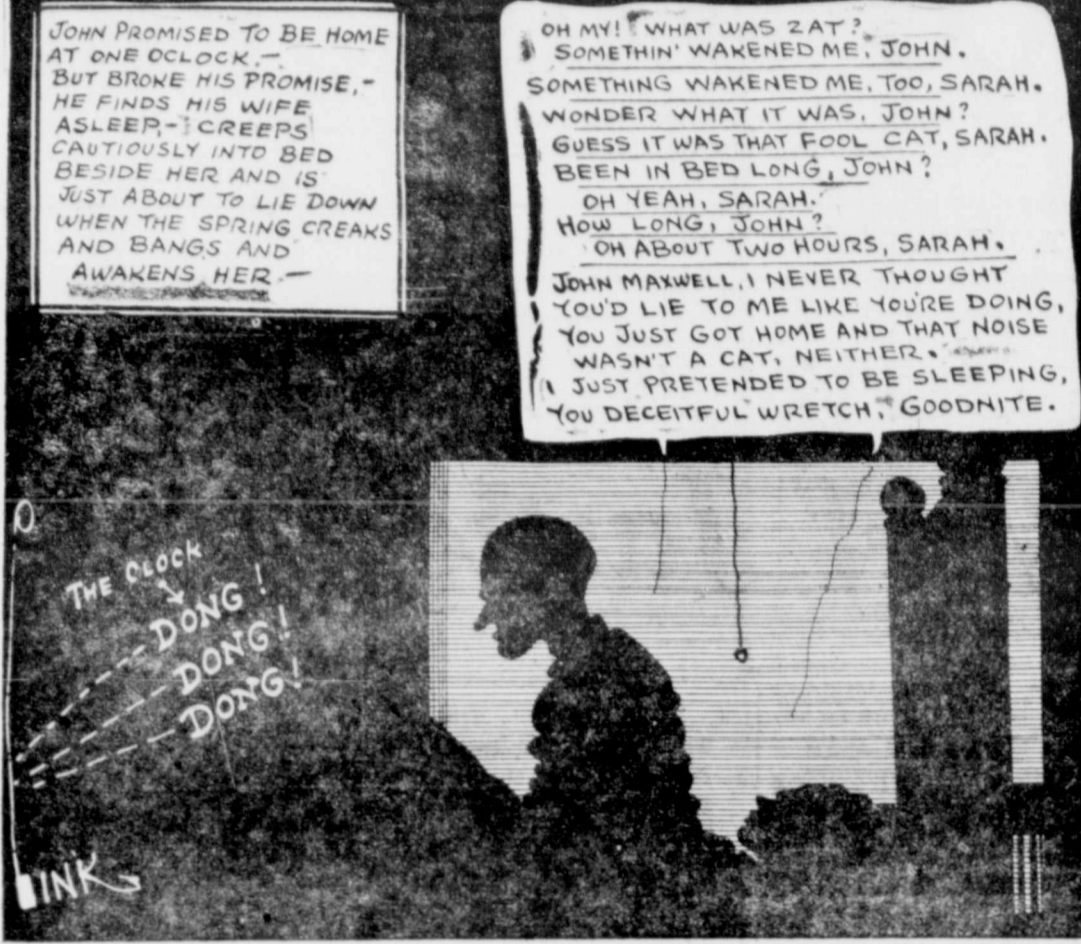 JOHN PROMISED TO BE HOME
AT ONE OCLOCK.-
BUT BROKE HIS PROMISE,-
HE FINDS HIS WIFE
ASLEEP,- CREEPS
CAUTIOUSLY INTO BED
BESIDE HER AND IS
JUST ABOUT TO LIE DOWN
WHEN THE SPRING CREAKS
AND BANGS AND
AWAKENS HER.-
OH MY! WHAT WAS ZAT?
SOMETHIN' WAKENED ME, JOHN.
SOMETHING WAKENED ME, TOO, SARAH.
WONDER WHAT IT WAS, JOHN?
GUESS IT WAS THAT FOOL CAT, SARAH.
BEEN IN BED LONG, JOHN?
OH YEAH, SARAH.
HOW LONG, JOHN?
OH ABOUT TWO HOURS, SARAH.
JOHN MAXWELL, I NEVER THOUGHT
YOU'D LIE TO ME LIKE YOU'RE DOING,
YOU JUST GOT HOME AND THAT NOISE
WASN'T A CAT, NEITHER.
I JUST PRETENDED TO BE SLEEPING,
YOU DECEITFUL WRETCH, GOODNITE.
THE CLOCK
DONG!
DONG!
DONG!
INK